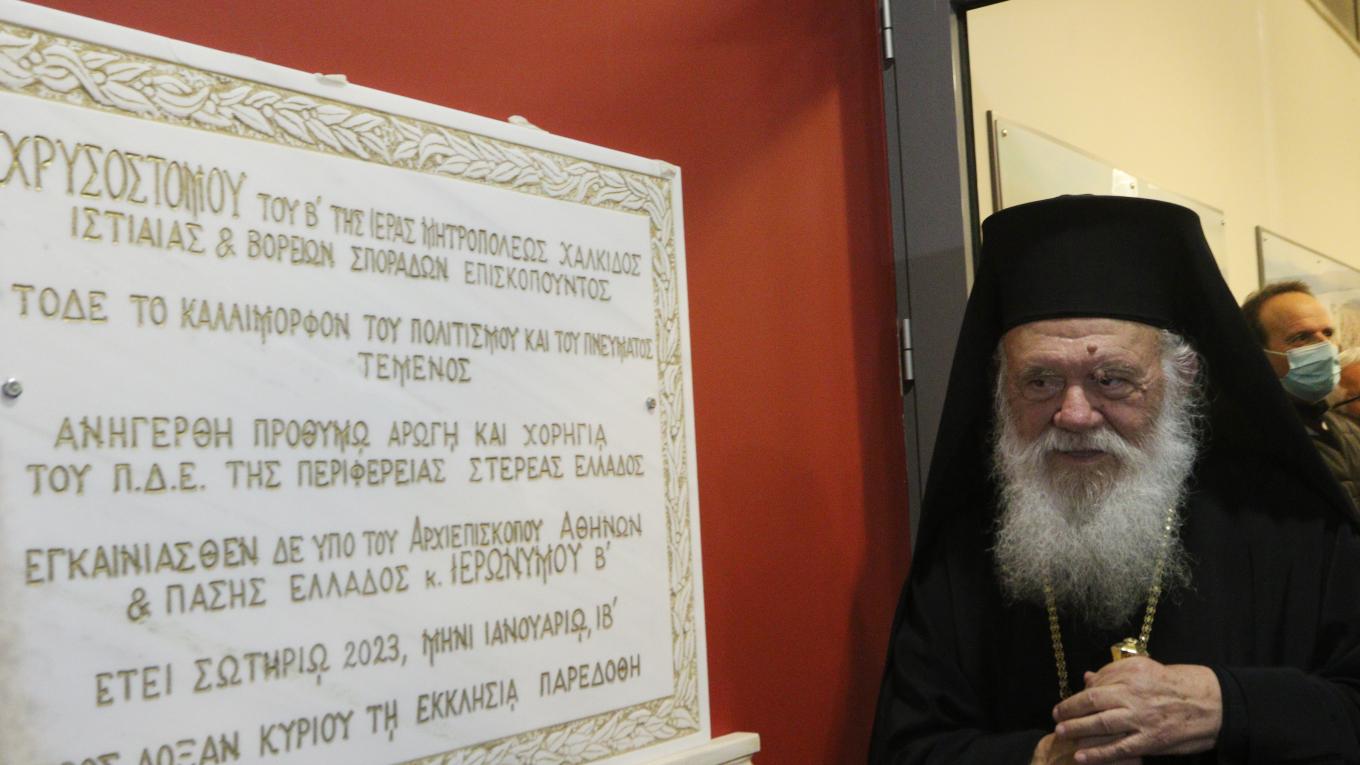 ΧΡΥΣΟΣΤΟΜΟΥ ΤΟΥ Β' ΤΗΣ ΙΕΡΑΣ ΜΗΤΡΟΠΟΛΕΩΣ ΧΑΛΚΙΔΟΣ
ΙΣΤΙΑΙΑΣ & ΒΟΡΕΙΩΝ ΣΠΟΡΑΔΩΝ ΕΠΙΣΚΟΠΟΥΝΤΟΣ
ΤΟΔΕ ΤΟ ΚΑΛΛΙΜΟΡΦΟΝ ΤΟΥ ΠΟΛΙΤΙΣΜΟΥ ΚΑΙ ΤΟΥ ΠΝΕΥΜΑΤΟΣ
ΤΕΜΕΝΟΣ
ΑΝΗΓΕΡΘΗ ΠΡΟΘΥΜῼ ΑΡΩΓῌ ΚΑΙ ΧΟΡΗΓΙᾼ
ΤΟΥ Π.Δ.Ε. ΤΗΣ ΠΕΡΙΦΕΡΕΙΑΣ ΣΤΕΡΕΑΣ ΕΛΛΑΔΟΣ
ΕΓΚΑΙΝΙΑΣΘΕΝ ΔΕ ΥΠΟ ΤΟΥ ΑΡΧΙΕΠΙΣΚΟΠΟΥ ΑΘΗΝΩΝ
& ΠΑΣΗΣ ΕΛΛΑΔΟΣ κ. ΙΕΡΩΝΥΜΟΥ Β'
ΕΤΕΙ ΣΩΤΗΡΙῼ 2023, ΜΗΝΙ ΙΑΝΟΥΑΡΙῼ, ΙΒ'
ΔΟΞΑΝ ΚΥΡΙΟΥ Τῌ ΕΚΚΛΗΣΙᾼ ΠΑΡΕΔΟΘΗ